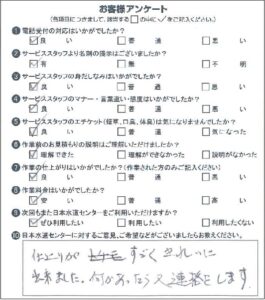 お客様アンケート
(各項目につきまして、該当する□の中に✓をご記入ください。)
❶電話受付の対応はいかがでしたか?
良い 普通 悪い
❷サービススタッフより名刺の提示はございましたか?
有 無 不明
❸サービススタッフの身だしなみはいかがでしたか?
良い 普通 悪い
❹サービススタッフのマナー・言葉遣い・態度はいかがでしたか?
良い 普通 悪い
❺サービススタッフのエチケット(煙草、口臭、体臭)は気になりませんでしたか?
良い 普通 気になった
❻作業前のお見積もりの説明はご理解いただけましたか?
理解できた 理解ができなかった 説明がなかった
❼作業の仕上がりはいかがでしたか?(作業された方のみご記入ください)
良い 普通 悪い
❽作業料金はいかがでしたか?
安い 普通 高い
❾次回もまた日本水道センターをご利用いただけますか?
ぜひ利用したい 利用したい 利用したくない
❿日本水道センターに対するご意見、ご希望などがございましたらお教えください。
仕上りが すごくきれいに
出来ました。何かあったら又連絡とします。